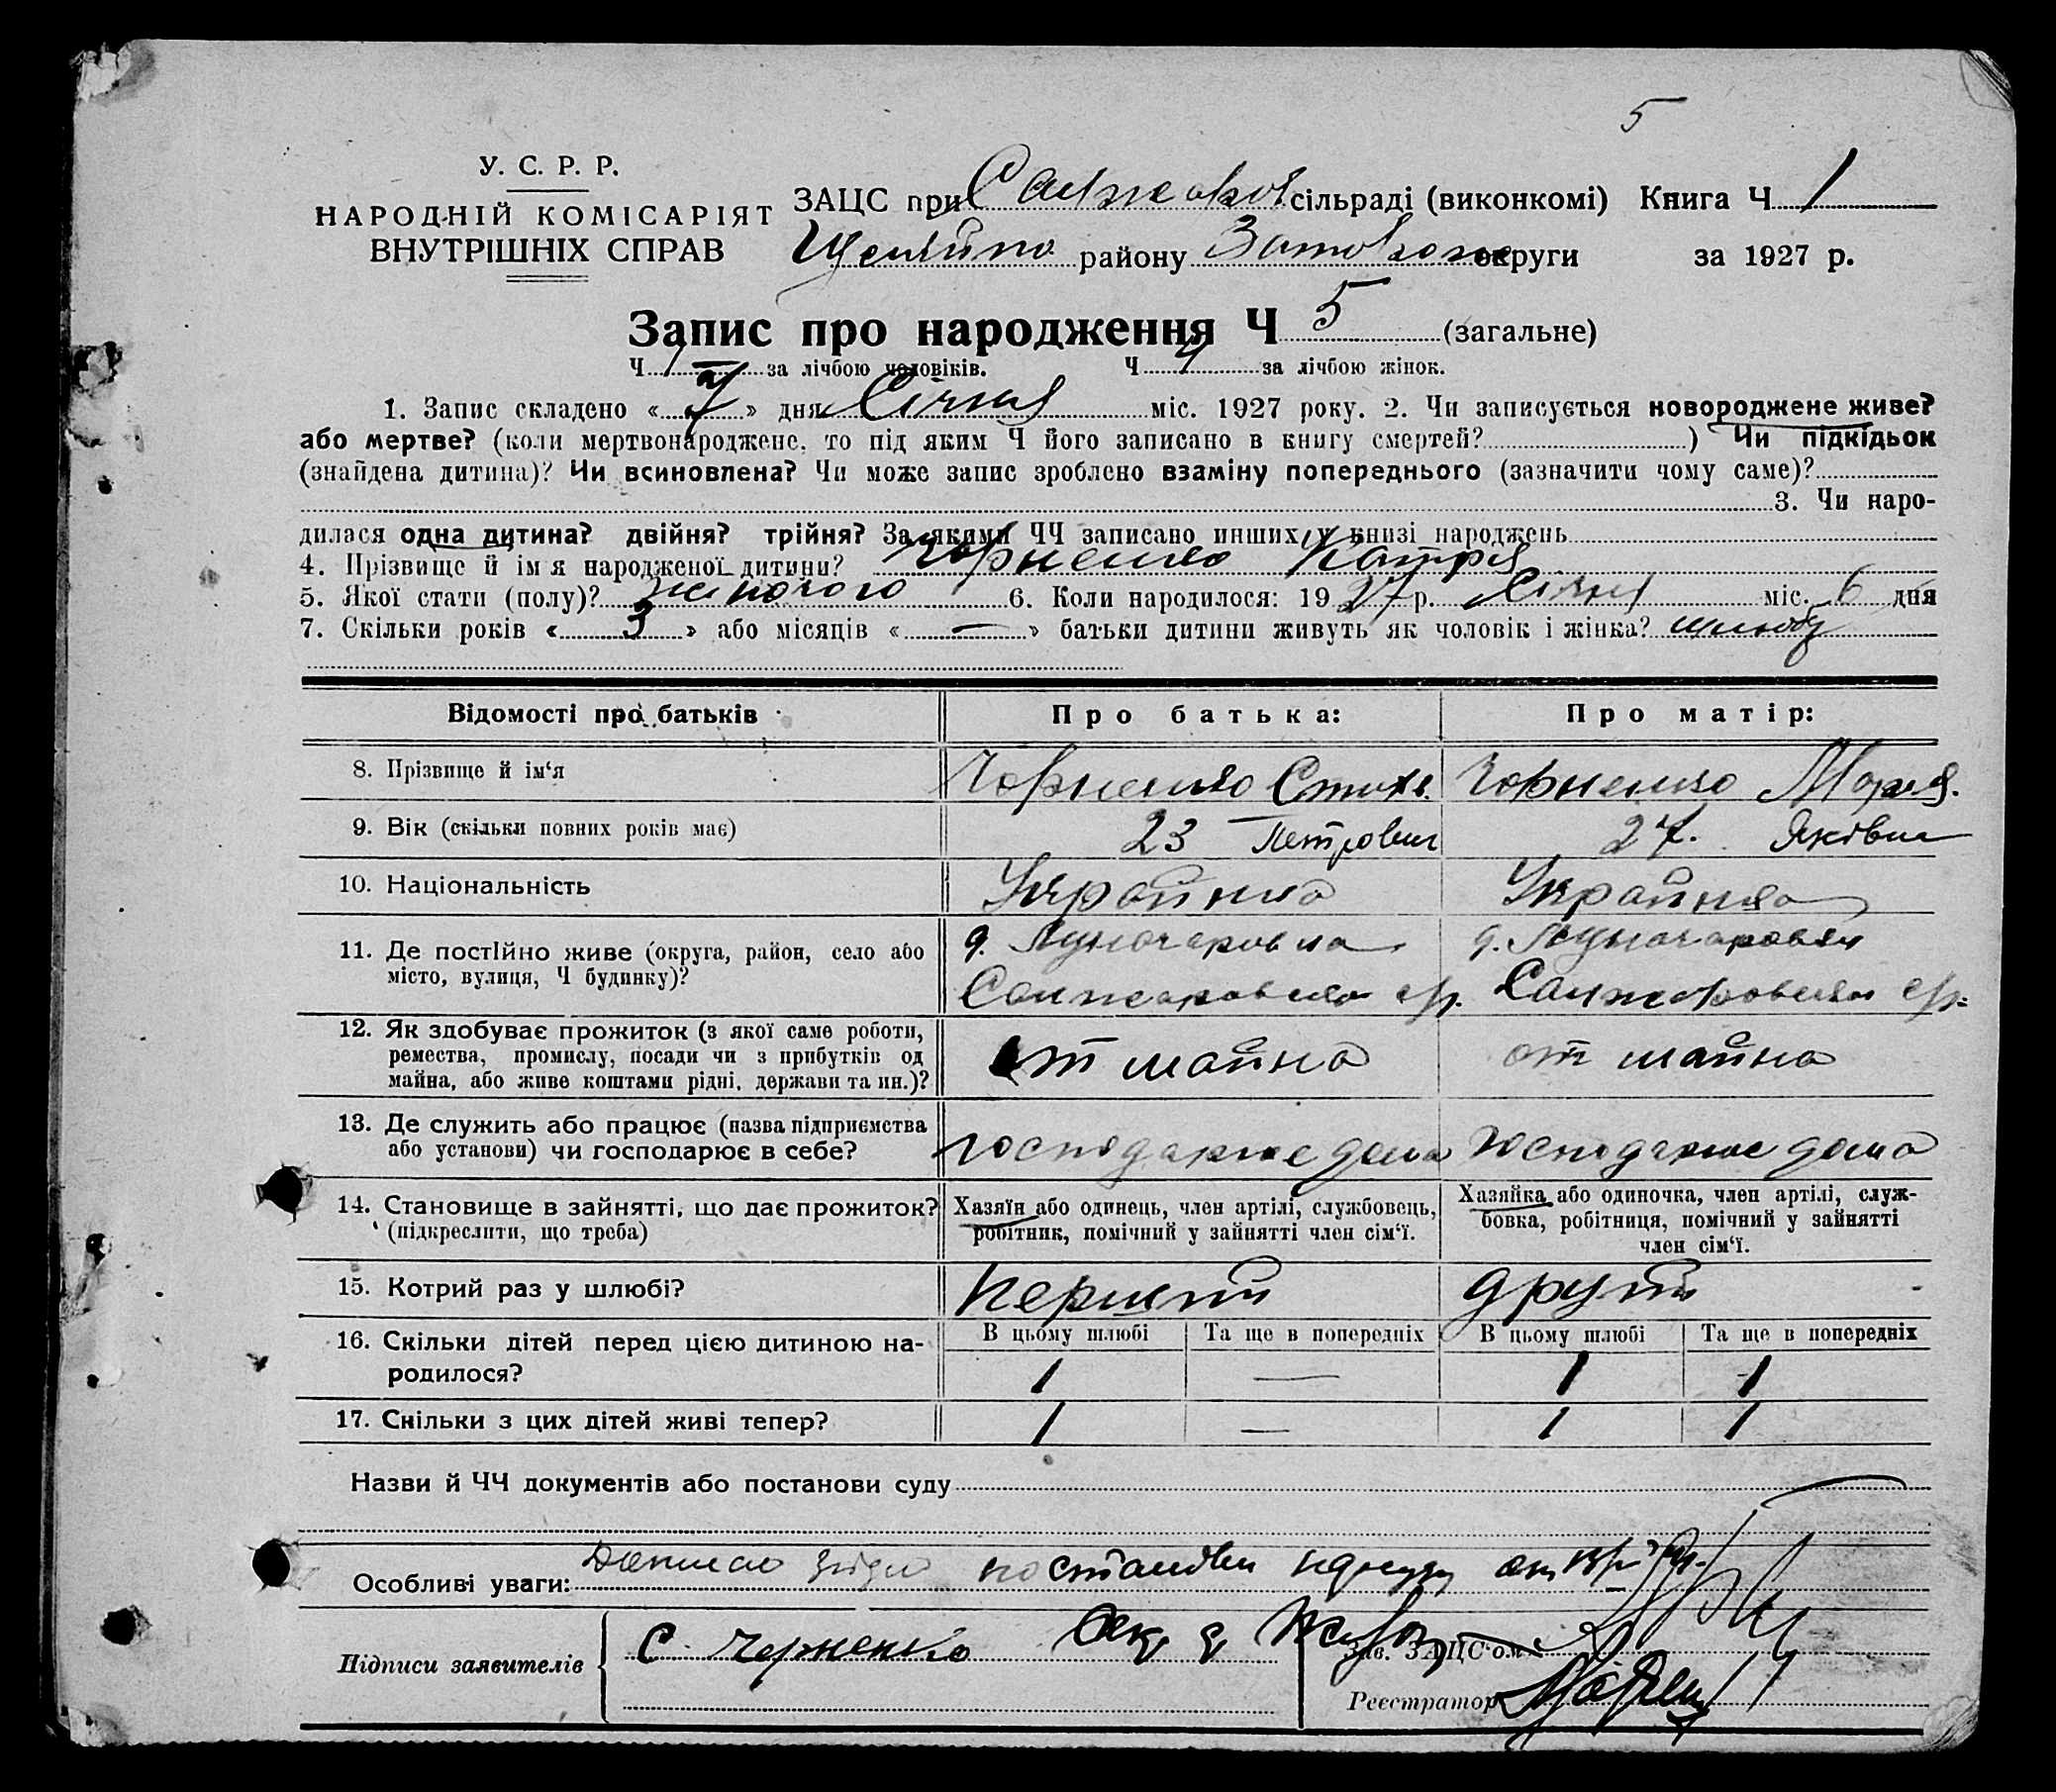 5
У. С. Р. Р.
НАРОДНІЙ КОМІСАРІЯТ
ВНУТРІШНІХ СПРАВ
ЗАЦС при сільраді (виконкомі) Книга Ч 1
району округи за 1927 р.
Запис про народження Ч 5 (загальне)
Ч 1 за лічбою чоловіків. Ч 4 за лічбою жінок.
1. Запис складено « 7 » дня Січня міс. 1927 року. 2. Чи записується новороджене живе?
або мертве? (коли мертвонароджене, то під яким Ч його записано в книгу смертей? ) Чи підкідьок
(знайдена дитина)? Чи всиновлена? Чи може запис зроблено взаміну попереднього (зазначити чому саме)?
3. Чи наро-
дилася одна дитина? двійня? трійня? За якими ЧЧ записано инших у книзі народжень
4. Прізвище й ім'я народженої дитини? Чорненко Катря
5. Якої стати (полу)? жіночого 6. Коли народилося: 1927 р. Січня міс. 6 дня
7. Скільки років « 3 » або місяців « — » батьки дитини живуть як чоловік і жінка? шлюбу
Відомості про батьків Про батька: Про матір:
8. Прізвище й ім'я Чорненко Чорненко Мария.
9. Вік (скільки повних років має) 23 Петрович 27. Яківна
10. Національність Українка
11. Де постійно живе (округа, район, село або
місто, вулиця, Ч будинку)?
12. Як здобуває прожиток (з якої саме роботи,
ремества, промислу, посади чи з прибутків од
майна, або живе коштами рідні, держави та ин.)? от майна от майна
13. Де служить або працює (назва підприємства
або установи) чи господарює в себе? господарює дома господарює дома
14. Становище в зайнятті, що дає прожиток? Хазяїн або одинець, член артілі, службовець, Хазяйка або одиночка, член артілі, служ-
(підкреслити, що треба) робітник, помічний у зайнятті член сім'ї. бовка, робітниця, помічний у зайнятті
член сім'ї.
15. Котрий раз у шлюбі? перший другий
В цьому шлюбі Та ще в попередніх В цьому шлюбі Та ще в попередніх
16. Скільки дітей перед цією дитиною на-
родилося? 1 — 1 1
17. Скільки з цих дітей живі тепер? 1 — 1 1
Назви й ЧЧ документів або постанови суду
Особливі уваги: постанови
Підписи заявителів С. Черненко Зав. ЗАЦС'ом
Реєстратор